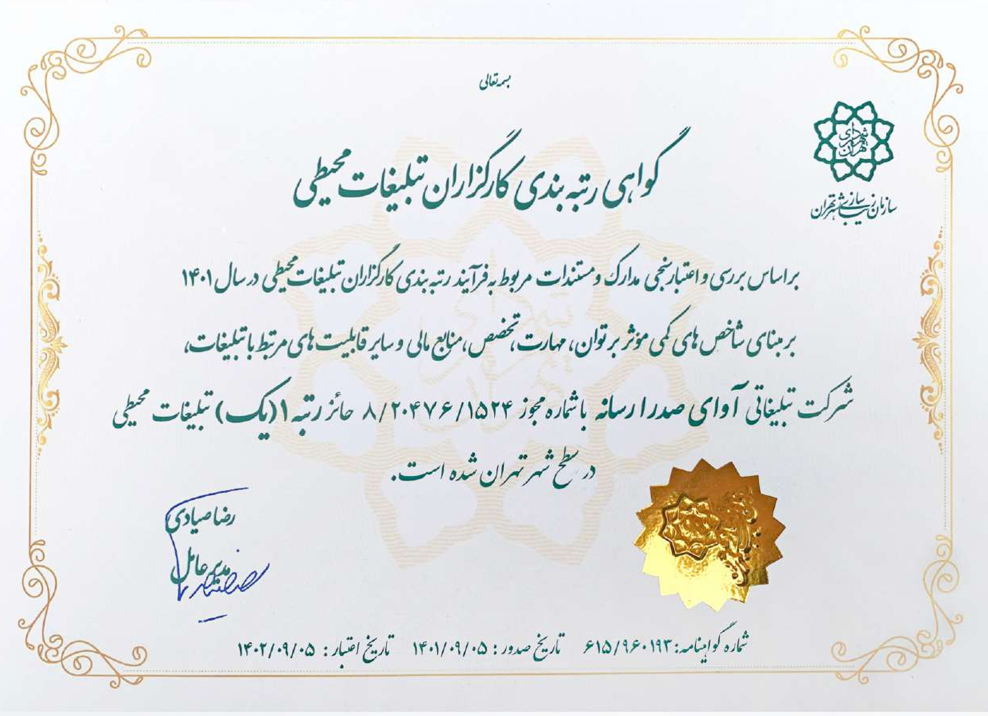 بسمه تعالی
شهرداری تهران
سازمان زیباسازی شهر تهران
گواهی رتبه بندی کارگزاران تبلیغات محیطی
بر اساس بررسی و اعتبارسنجی مدارک و مستندات مربوط به فرآیند رتبه بندی کارگزاران تبلیغات محیطی در سال ۱۴۰۱
بر مبنای شاخص های کمی مؤثر بر توان، مهارت، تخصص، منابع مالی و سایر قابلیت های مرتبط با تبلیغات،
شرکت تبلیغاتی آوای صدرا رسانه با شماره مجوز ۸/۲۰۴۷۶/۱۵۲۴ حائز رتبه ۱ (یک) تبلیغات محیطی
در سطح شهر تهران شده است.
رضا صیادی
مدیر عامل
شماره گواهینامه: ۶۱۵/۹۶۰۱۹۳ تاریخ صدور: ۱۴۰۱/۰۹/۰۵ تاریخ اعتبار: ۱۴۰۲/۰۹/۰۵